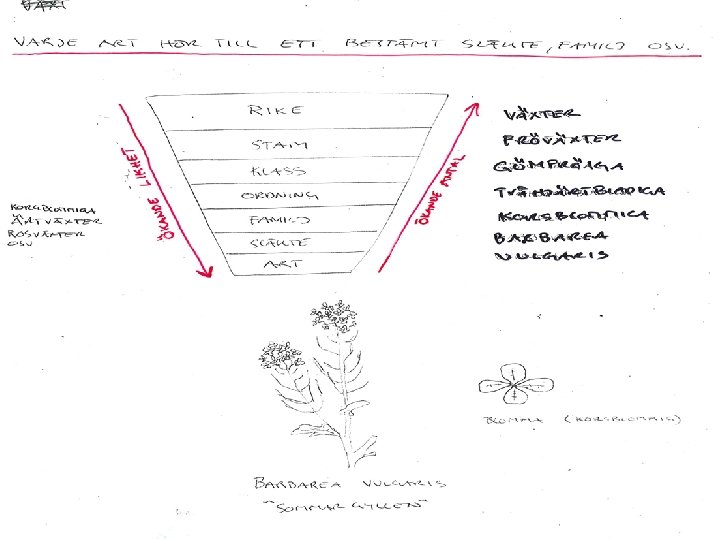 VARJE ART HÖR TILL ETT BESTÄMT SLÄKTE, FAMILJ OSV.
RIKE
STAM
KLASS
ORDNING
FAMILJ
SLÄKTE
ART
ÖKANDE LIKHET
ÖKANDE ANTAL
VÄXTER
FRÖVÄXTER
GÖMFRÖIGA
TVÅHJÄRTBLADIGA
KORSBLOMMIGA
BARBAREA
VULGARIS
KORSBLOMMIGA
ÄRTVÄXTER
ROSVÄXTER
OSV
BLOMMA (KORSBLOMMIG)
BARBAREA VULGARIS
"SOMMARGYLLEN"